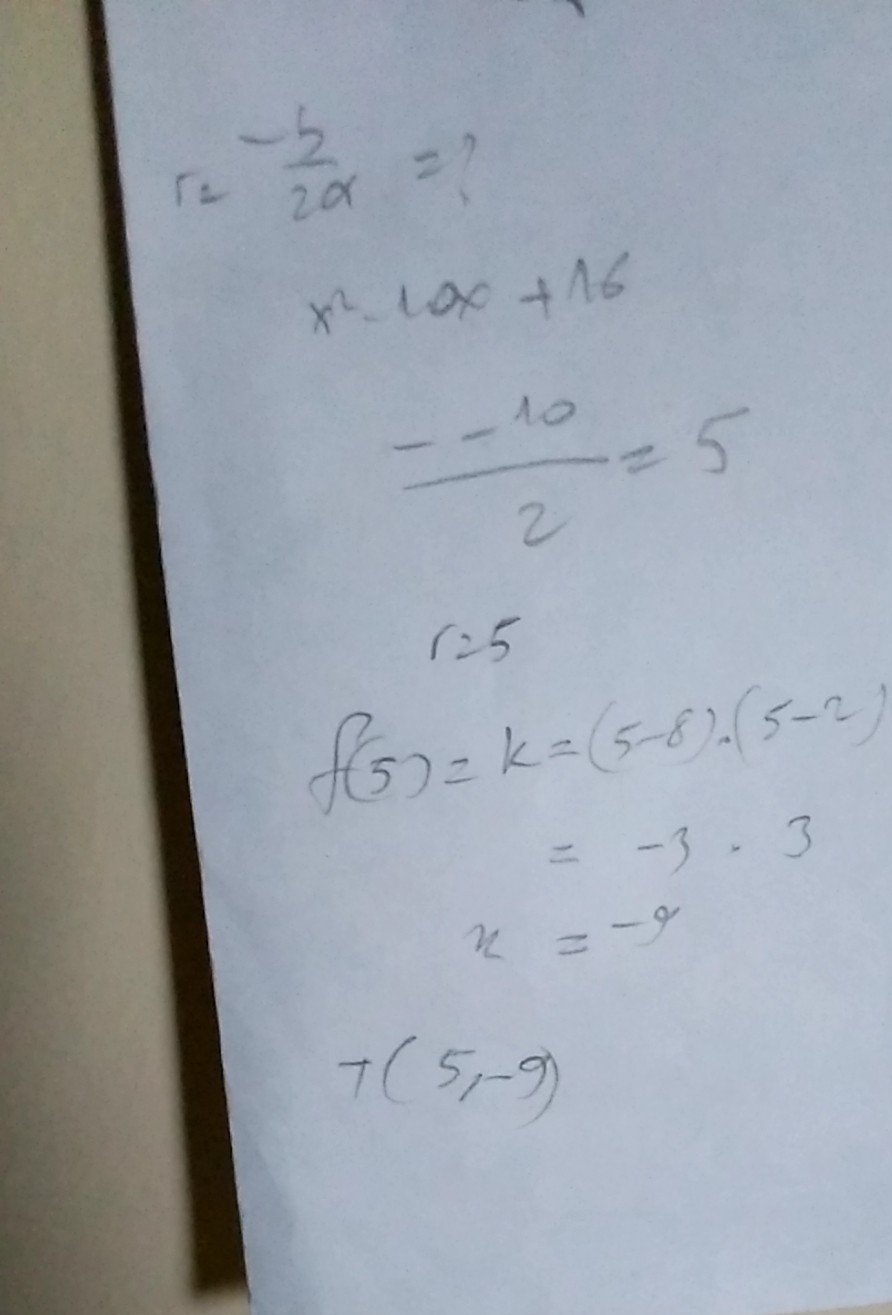 r = -b/2a = ?
x² - 10x + 16
- -10/2 = 5
r = 5
f(5) = k = (5-8).(5-2)
= -3 . 3
k = -9
T(5,-9)